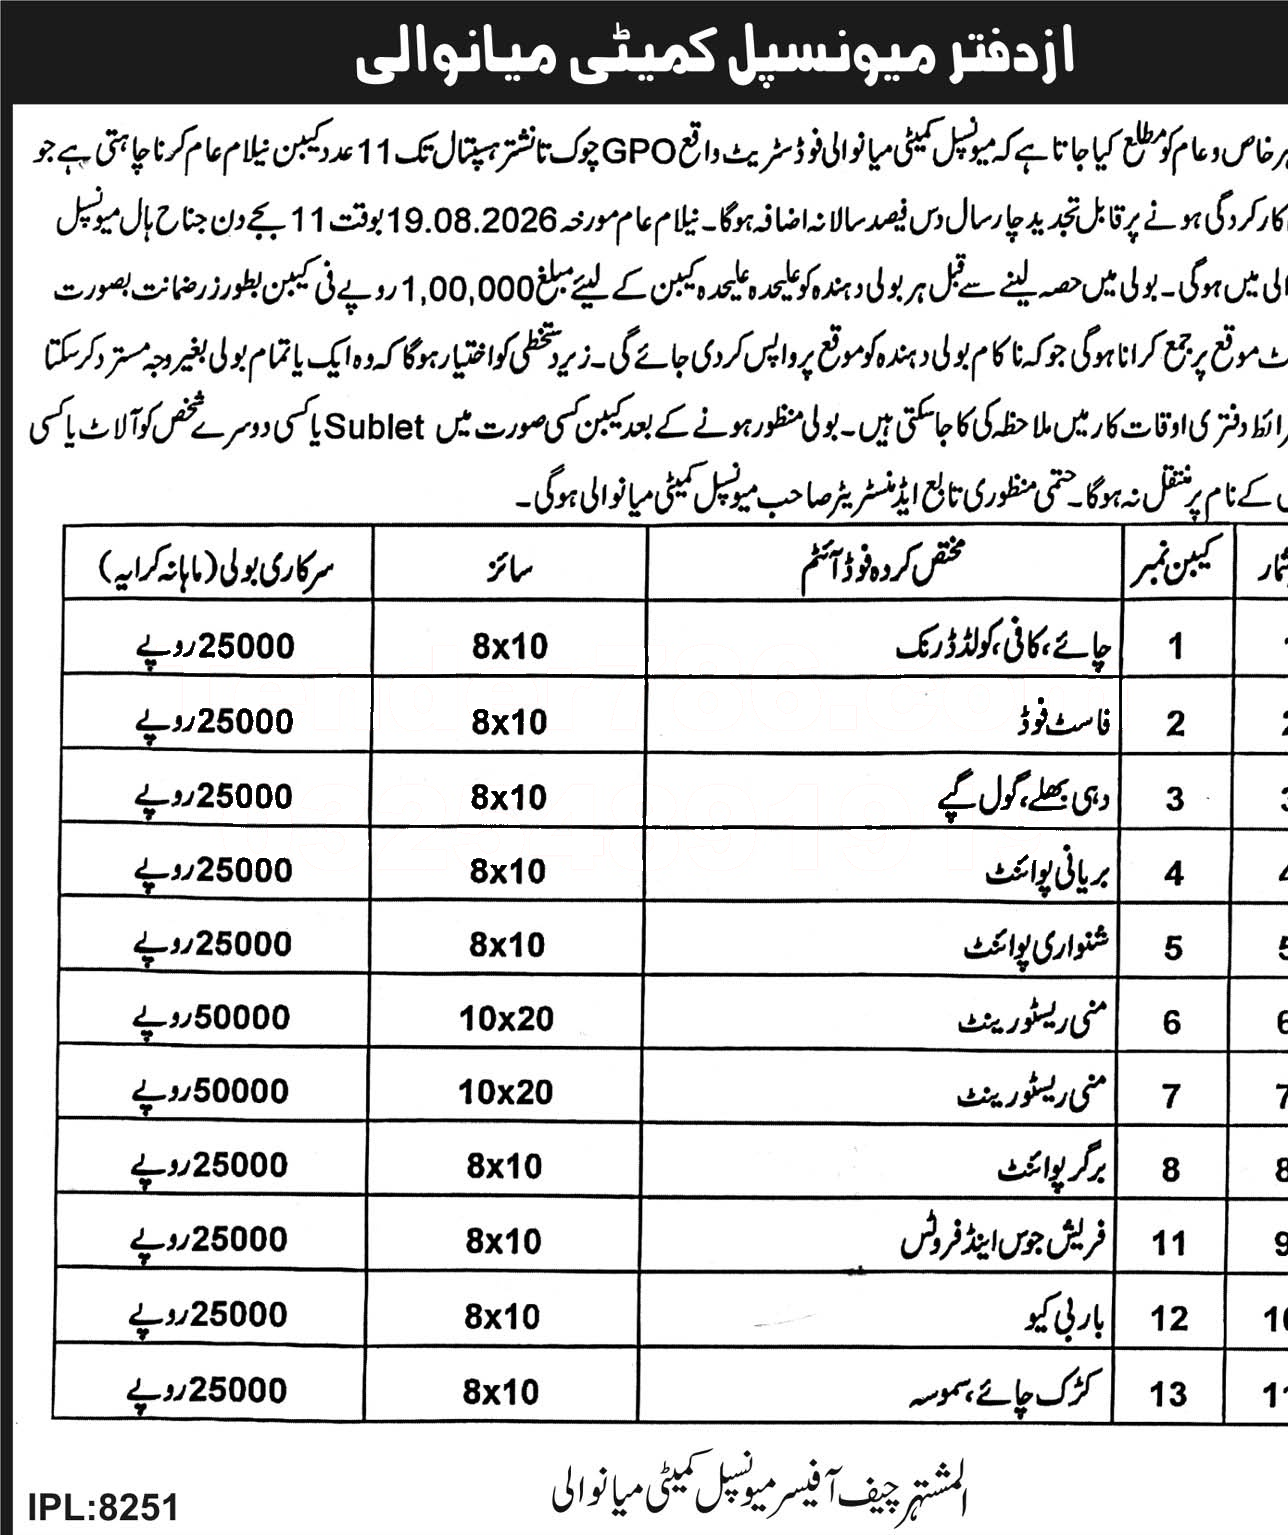 ازدفتر میونسپل کمیٹی میانوالی
ہر خاص و عام کو مطلع کیا جاتا ہے کہ میونسپل کمیٹی میانوالی فوڈ سٹریٹ واقع GPO چوک تا نشتر ہسپتال تک 11 عدد کیبن نیلام عام کرنا چاہتی ہے جو
کارکردگی ہونے پر قابل تجدید چار سال دس فیصد سالانہ اضافہ ہوگا۔ نیلام عام مورخہ 19.08.2026 بوقت 11 بجے دن جناح ہال میونسپل
میں ہوگی۔ بولی میں حصہ لینے سے قبل ہر بولی دہندہ کو علیحدہ علیحدہ کیبن کے لیئے مبلغ 1,00,000 روپے فی کیبن بطور زرضمانت بصورت
موقع پر جمع کرانا ہوگی جو کہ ناکام بولی دہندہ کو موقع پر واپس کر دی جائے گی۔ زیر دستخطی کو اختیار ہوگا کہ وہ ایک یا تمام بولی بغیر وجہ مسترد کر سکتا
دفتری اوقات کار میں ملاحظہ کی کا جاسکتی ہیں۔ بولی منظور ہونے کے بعد کیبن کسی صورت میں Sublet یا کسی دوسرے شخص کو آلاٹ یا کسی
کے نام پر منتقل نہ ہوگا۔ حتمی منظوری تابع ایڈمنسٹریٹر صاحب میونسپل کمیٹی میانوالی ہوگی۔
کیبن نمبر مختص کردہ فوڈ آئٹم سائز سرکاری بولی (ماہانہ کرایہ)
1 1 چائے، کافی، کولڈ ڈرنک 8x10 25000 روپے
2 2 فاسٹ فوڈ 8x10 25000 روپے
3 3 دہی بھلے، گول گپے 8x10 25000 روپے
4 4 بریانی پوائنٹ 8x10 25000 روپے
5 5 شنواری پوائنٹ 8x10 25000 روپے
6 6 منی ریسٹورینٹ 10x20 50000 روپے
7 7 منی ریسٹورینٹ 10x20 50000 روپے
8 8 برگر پوائنٹ 8x10 25000 روپے
9 11 فریش جوس اینڈ فروٹس 8x10 25000 روپے
10 12 بار بی کیو 8x10 25000 روپے
11 13 کڑک چائے، سموسہ 8x10 25000 روپے
المشتہر چیف آفیسر میونسپل کمیٹی میانوالی
IPL:8251